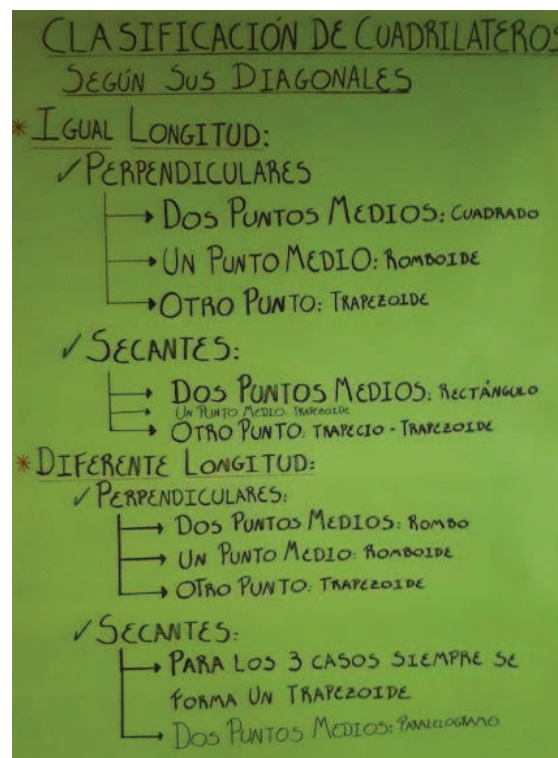 CLASIFICACIÓN DE CUADRILATEROS
SEGÚN SUS DIAGONALES
* IGUAL LONGITUD:
✓ PERPENDICULARES
→ DOS PUNTOS MEDIOS: CUADRADO
→ UN PUNTO MEDIO: ROMBOIDE
→ OTRO PUNTO: TRAPEZOIDE
✓ SECANTES:
→ DOS PUNTOS MEDIOS: RECTÁNGULO
→ UN PUNTO MEDIO: TRAPEZOIDE
→ OTRO PUNTO: TRAPECIO - TRAPEZOIDE
* DIFERENTE LONGITUD:
✓ PERPENDICULARES:
→ DOS PUNTOS MEDIOS: ROMBO
→ UN PUNTO MEDIO: ROMBOIDE
→ OTRO PUNTO: TRAPEZOIDE
✓ SECANTES:
→ PARA LOS 3 CASOS SIEMPRE SE
FORMA UN TRAPEZOIDE
→ DOS PUNTOS MEDIOS: PARALELOGRAMO